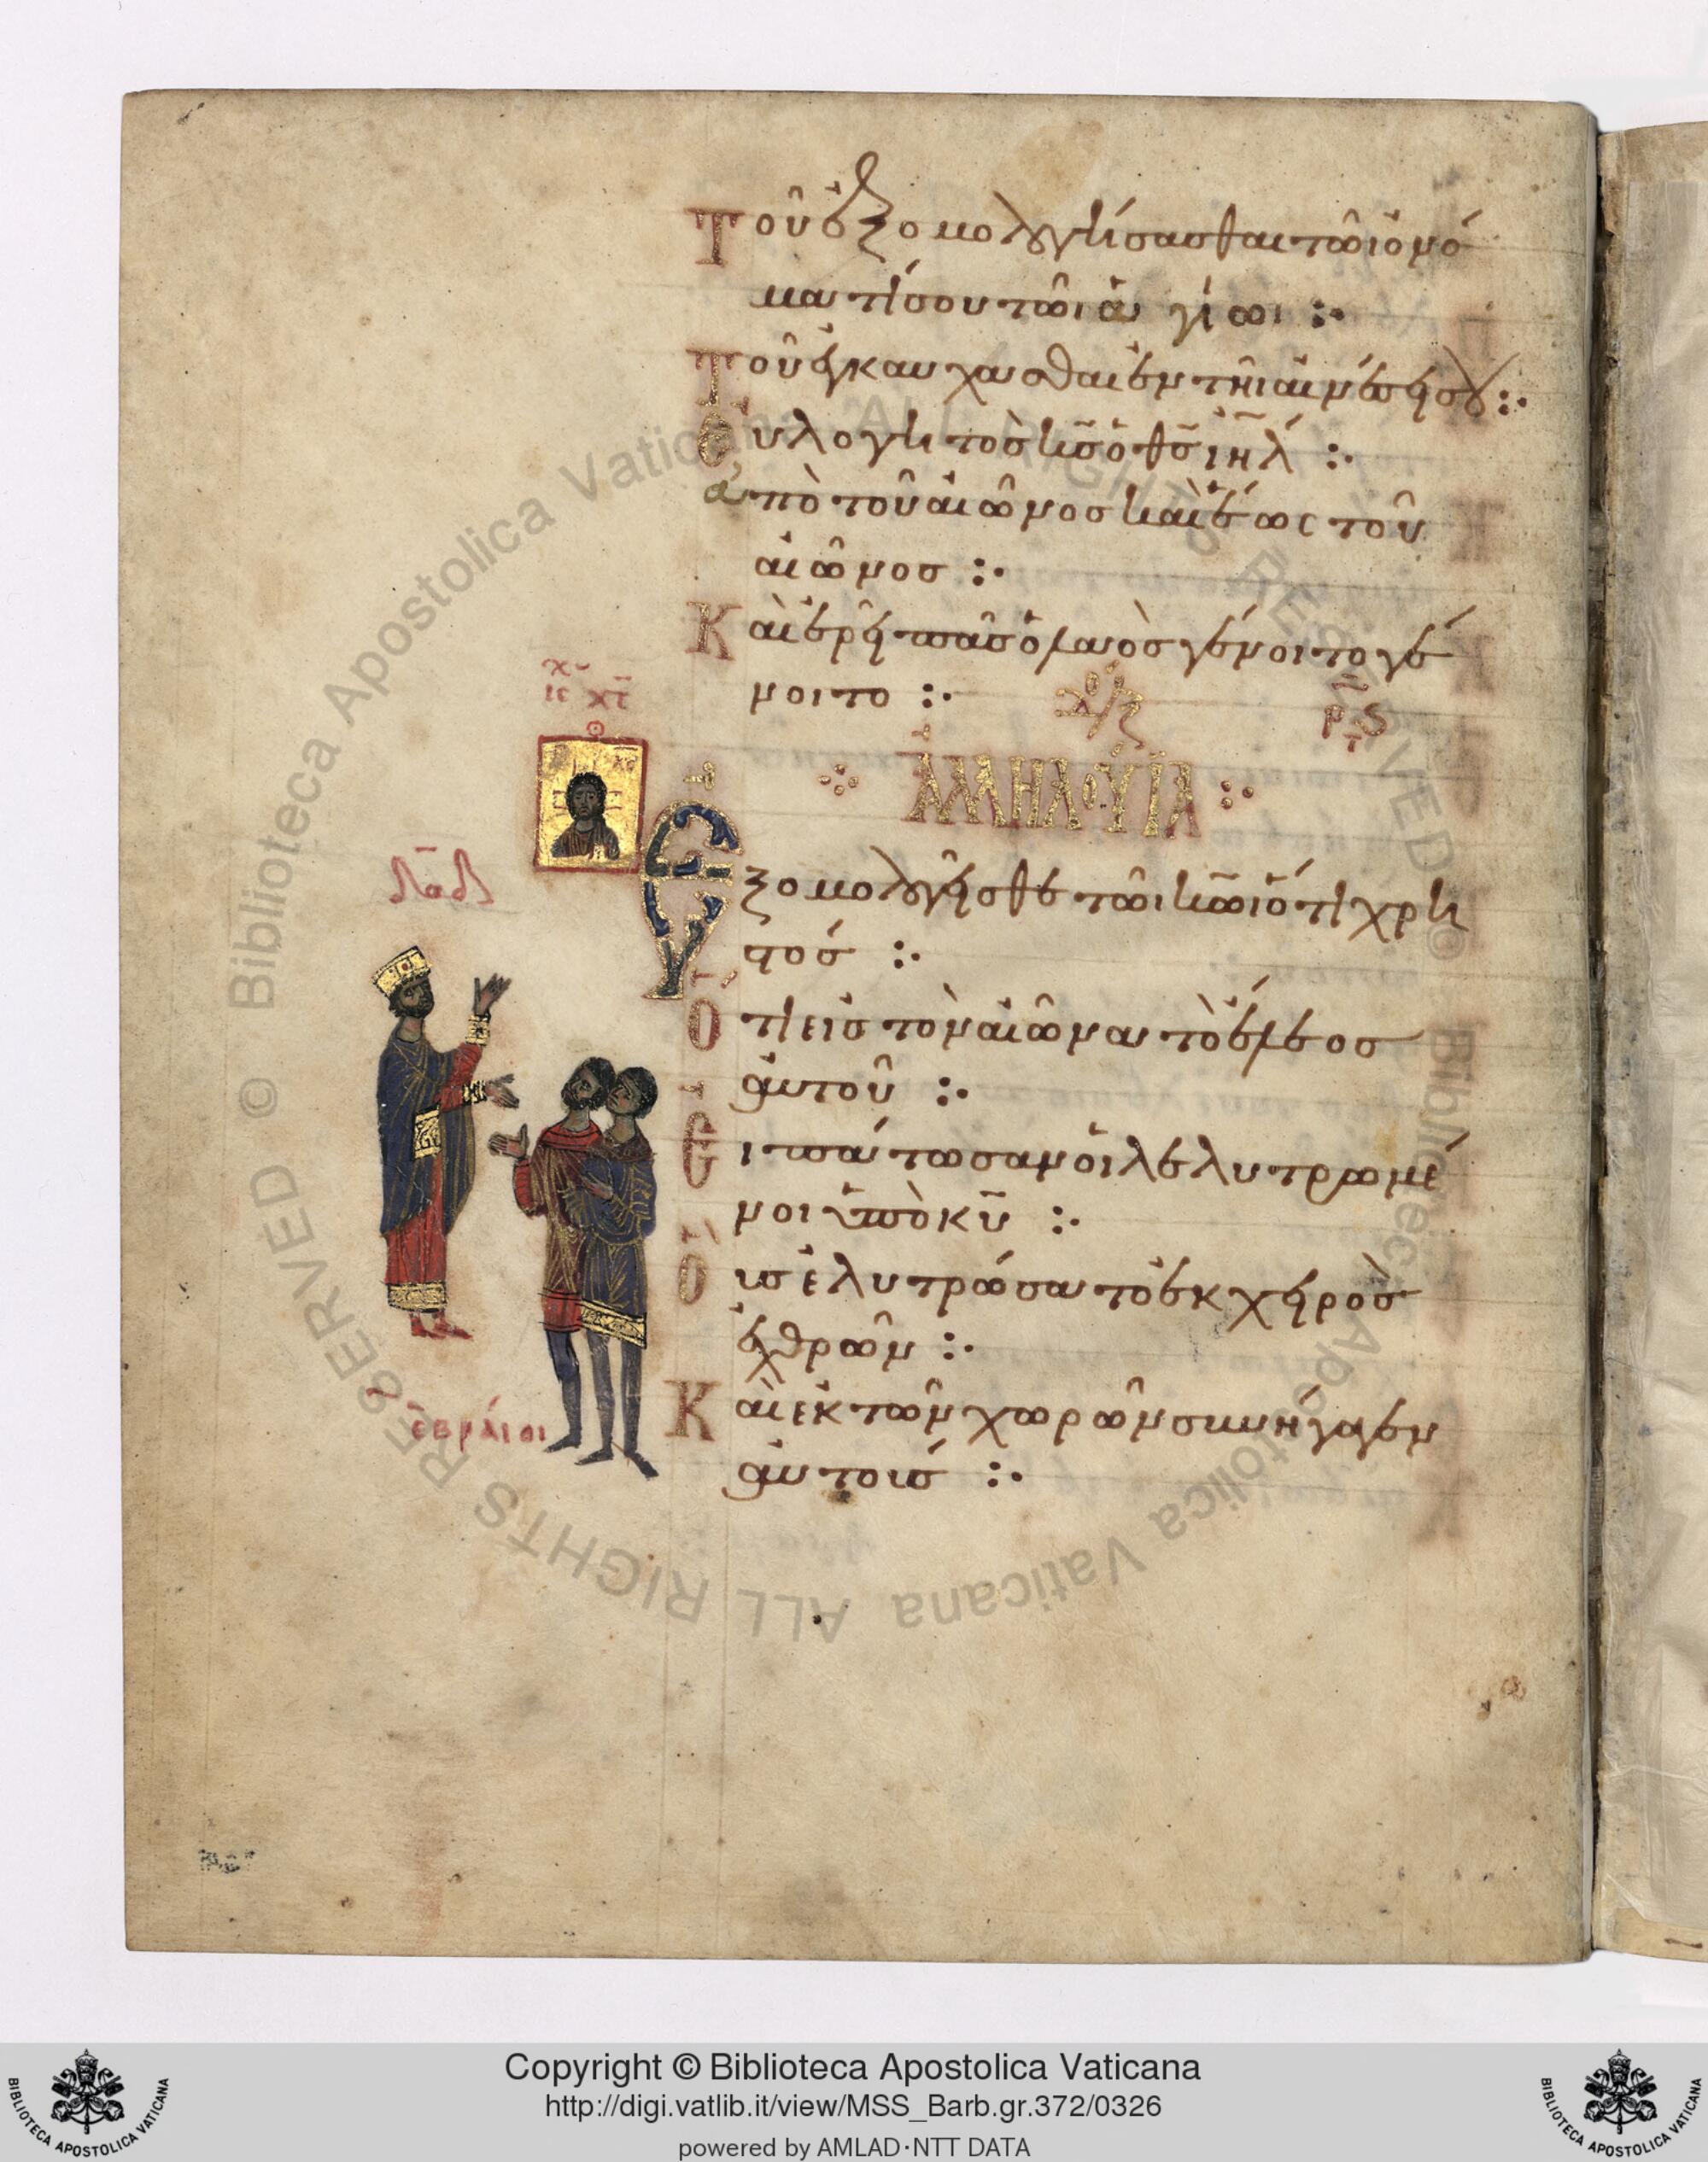 Τοῦ ἐξομολογήσασθαι τῶι ὀνό
ματί σου τῶι ἁγίωι :·
Τοῦ ἐγκαυχᾶσθαι ἐν τῆι αἰνέσει σου :·
Εὐλογητὸς κς̃ ὁ θς̃ ιηλ̃ :·
ἀπὸ τοῦ αἰῶνος καὶ ἕως τοῦ
αἰῶνος :·
Καὶ ἐρεῖ πᾶς ὁ λαὸς γένοιτο γέ
νοιτο :·
ρ̅ς̅
ΑΛΛΗΛΟΥΪΑ
ις χς
Ἐξομολογεῖσθε τῶι κω̃ι ὅτι χρη
στός :·
δαδ
Ὅτι εἰς τὸν αἰῶνα τὸ ἔλεος
αὐτοῦ :·
Εἰπάτωσαν οἱ λελυτρωμέ
νοι ὑπὸ κυ̃ :·
Οὓς ἐλυτρώσατο ἐκ χειρὸς
ἐχθρῶν :·
Καὶ ἐκ τῶν χωρῶν συνήγαγεν
αὐτούς :·
ἑβραίοι
© Biblioteca Apostolica Vaticana ALL RIGHTS RESERVED
© Biblioteca Apostolica Vaticana ALL RIGHTS RESERVED
Copyright © Biblioteca Apostolica Vaticana
http://digi.vatlib.it/view/MSS_Barb.gr.372/0326
powered by AMLAD·NTT DATA
BIBLIOTECA APOSTOLICA VATICANA
BIBLIOTECA APOSTOLICA VATICANA